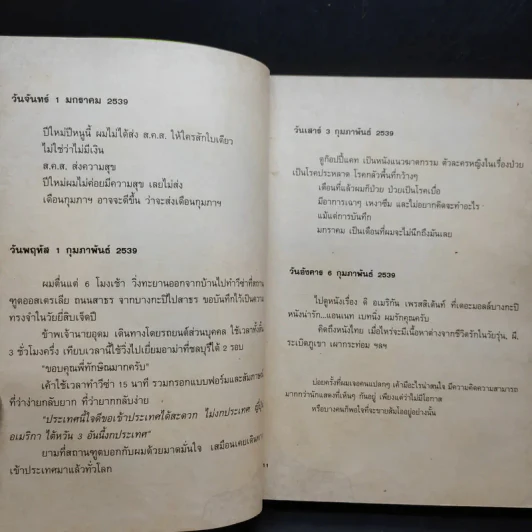 วันจันทร์ 1 มกราคม 2539
ปีใหม่ปีหนูนี้ ผมไม่ได้ส่ง ส.ค.ส. ให้ใครสักใบเดียว
ไม่ใช่ว่าไม่มีเงิน
ส.ค.ส. ส่งความสุข
ปีใหม่ผมไม่ค่อยมีความสุข เลยไม่ส่ง
เดือนกุมภาฯ อาจจะดีขึ้น ว่าจะส่งเดือนกุมภาฯ
วันพฤหัส 1 กุมภาพันธ์ 2539
ผมตื่นแต่ 6 โมงเช้า วิ่งทะยานออกจากบ้านไปทำวีซ่าที่สถาน
ฑูตออสเตรเลีย ถนนสาธร จากบางกะปิไปสาธร ขอบันทึกไว้เป็นความ
ทรงจำในวัยยี่สิบเจ็ดปี
ข้าพเจ้านายอุดม เดินทางโดยรถยนต์ส่วนบุคคล ใช้เวลาทั้งสิ้น
3 ชั่วโมงครึ่ง เทียบเวลานี้ใช้วิ่งไปเยี่ยมอาม่าที่ชลบุรีได้ 2 รอบ
"ขอบคุณพี่ทักษิณมากครับ"
เค้าใช้เวลาทำวีซ่า 15 นาที รวมกรอกแบบฟอร์มและสัมภาษณ์
ที่ว่าง่ายกลับยาก ที่ว่ายากกลับง่าย
"ประเทศนี้ใจดีขอเข้าประเทศได้สะดวก ไม่งกประเทศ
อเมริกา ไต้หวัน 3 อันนี้งกประเทศ"
ยามที่สถานฑูตบอกกับผมด้วยมาดมั่นใจ เสมือนเคยเดินทาง
เข้าประเทศมาแล้วทั่วโลก
วันเสาร์ 3 กุมภาพันธ์ 2539
ดูก๊อปปี้แคท เป็นหนังแนวฆาตกรรม ตัวละครหญิงในเรื่องป่วย
เป็นโรคประหลาด โรคกลัวพื้นที่กว้างๆ
เดือนที่แล้วผมก็ป่วย ป่วยเป็นโรคเบื่อ
มีอาการเฉาๆ เหงาซึม และไม่อยากคิดจะทำอะไร
แม้แต่การบันทึก
มกราคม เป็นเดือนที่ผมจะไม่นึกถึงมันเลย
วันอังคาร 6 กุมภาพันธ์ 2539
ไปดูหนังเรื่อง ดิ อเมริกัน เพรสสิเด้นท์ ที่เดอะมอลล์บางกะปิ
หนังน่ารัก...แอนเนท เบทนิ่ง ผมรักคุณครับ
คิดถึงหนังไทย เมื่อไหร่จะมีเนื้อหาต่างจากชีวิตรักในวัยรุ่น, ผี,
ระเบิดภูเขา เผากระท่อม ฯลฯ
บ่อยครั้งที่ผมเจอคนแปลกๆ เค้ามีอะไรน่าสนใจ มีความคิดความสามารถ
มากกว่านักแสดงที่เห็นๆ กันอยู่ เพียงแต่ว่าไม่มีโอกาส
หรือบางคนก็พอใจที่จะขายส้มโออยู่อย่างนั้น